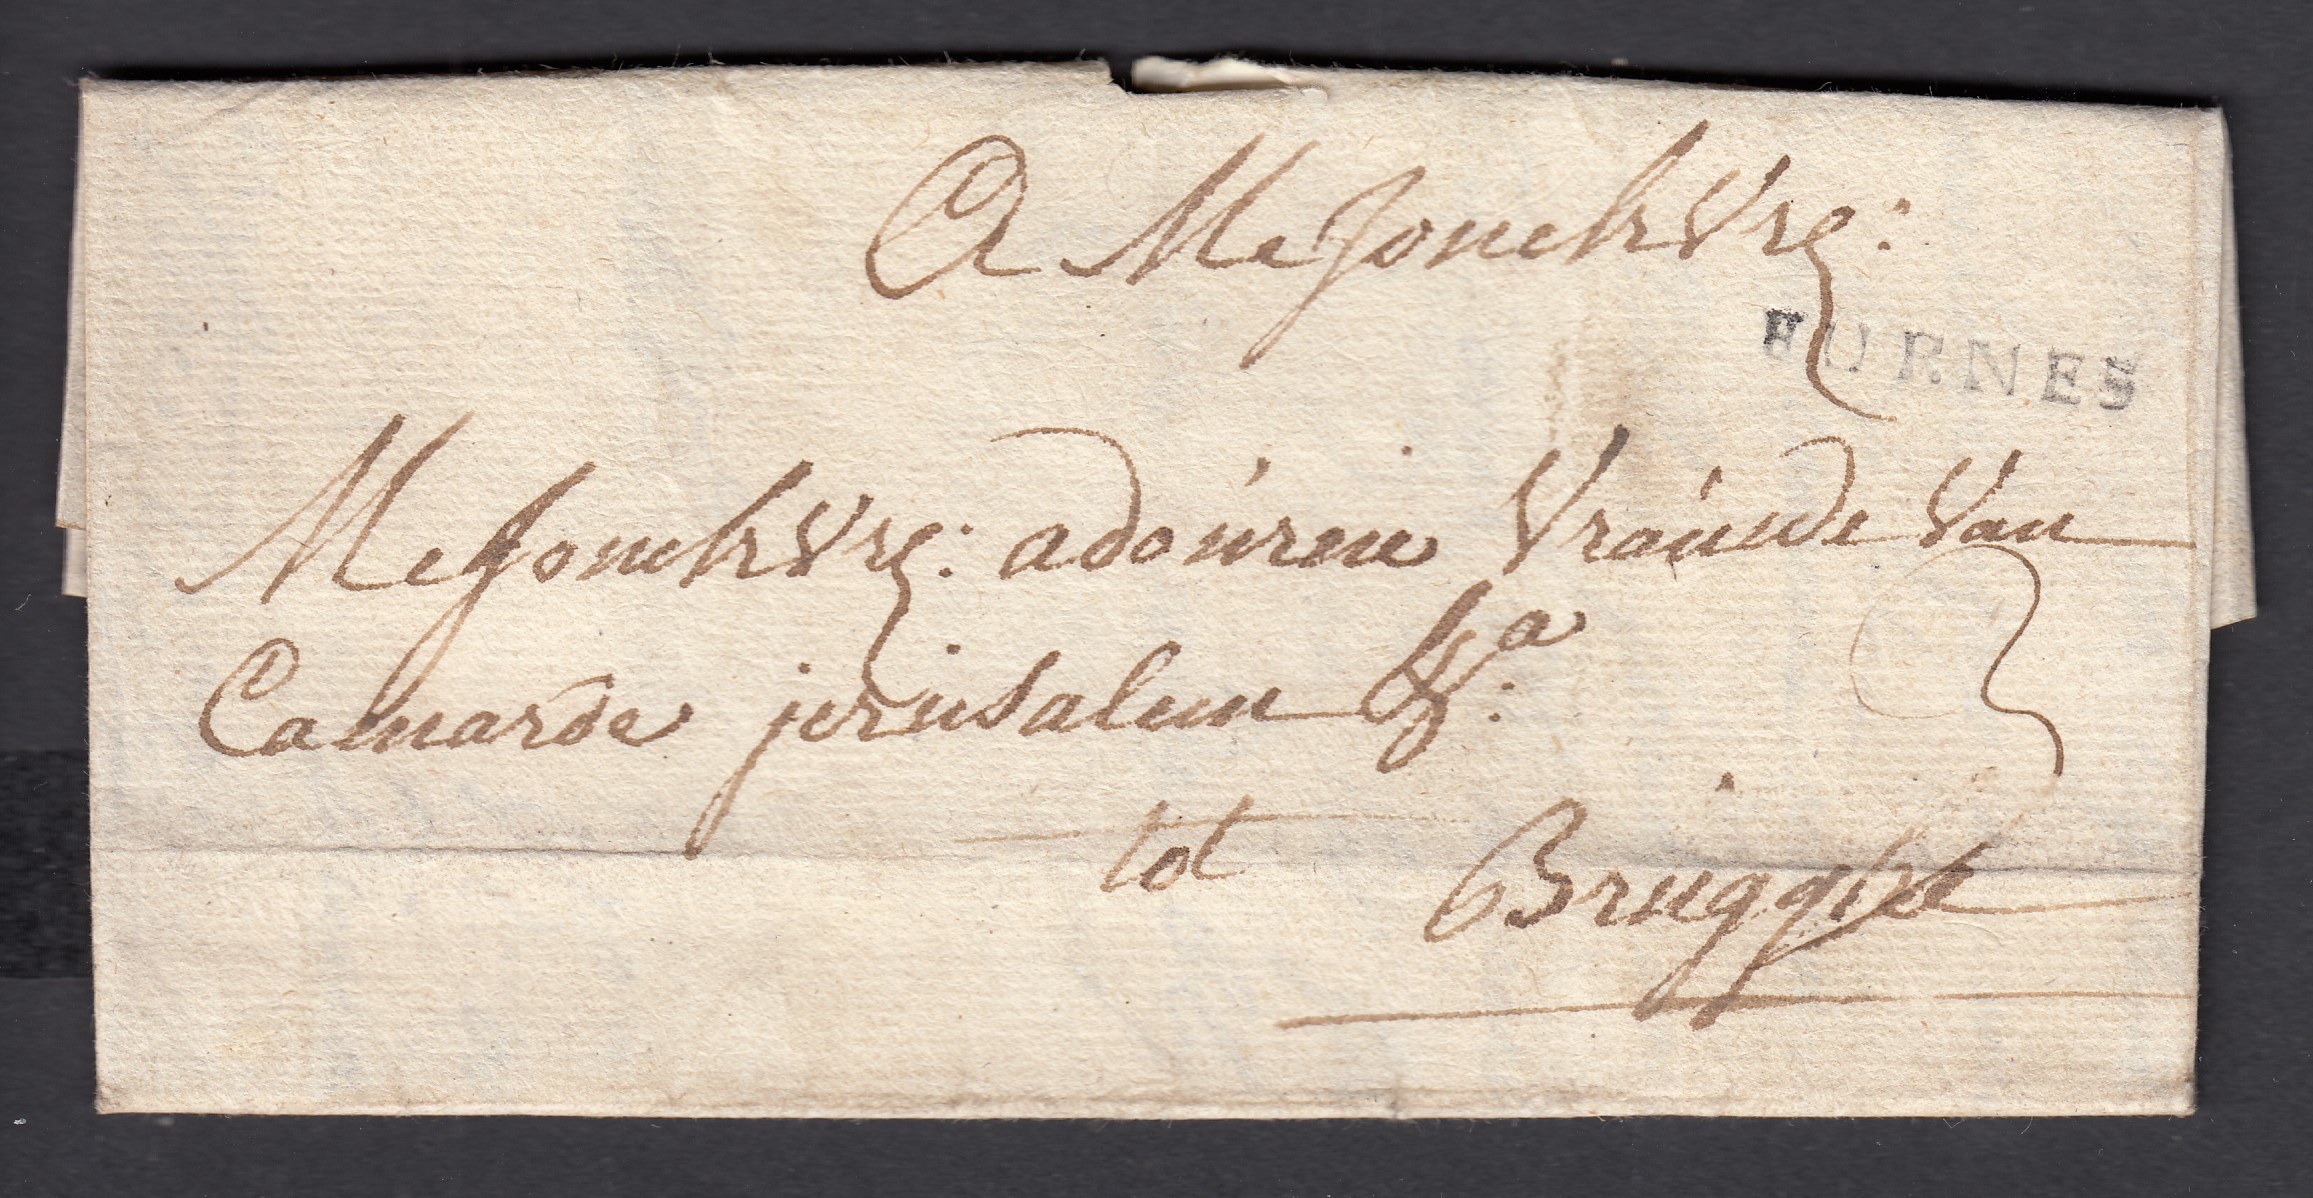 A MeJonckVrˢ:
FURNES
MeJonckVrˢ: adournie Vrauwe Van
Camarde jerusalem &ᵃ:
3
tot Brugghe